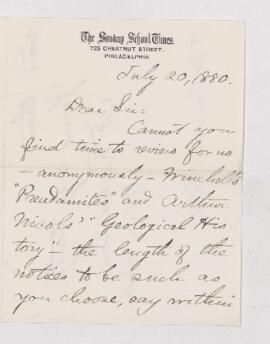 The Sunday School Times.
725 CHESTNUT STREET,
PHILADELPHIA.
July 20, 1880.
Dear Sir:
Cannot you
find time to review for us
- anonymously - Winchell's
"Preadamites" and Arthur
Nicols' "Geological His-
tory" - the length of the
notices to be such as
you choose, say within